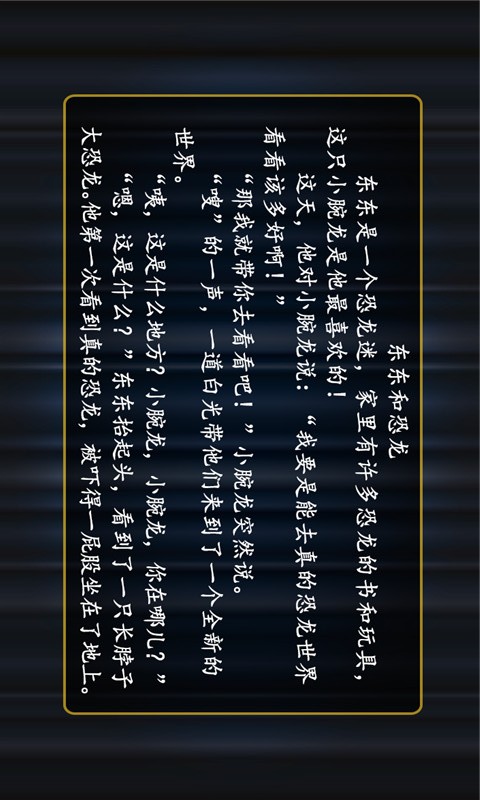 东东和恐龙
东东是一个恐龙迷，家里有许多恐龙的书和玩具，
这只小腕龙是他最喜欢的！
这天，他对小腕龙说：“我要是能去真的恐龙世界
看看该多好啊！”
“那我就带你去看看吧！”小腕龙突然说。
“嗖”的一声，一道白光带他们来到了一个全新的
世界。
“咦，这是什么地方？小腕龙，小腕龙，你在哪儿？”
“嗯，这是什么？”东东抬起头，看到了一只长脖子
大恐龙。他第一次看到真的恐龙，被吓得一屁股坐在了地上。